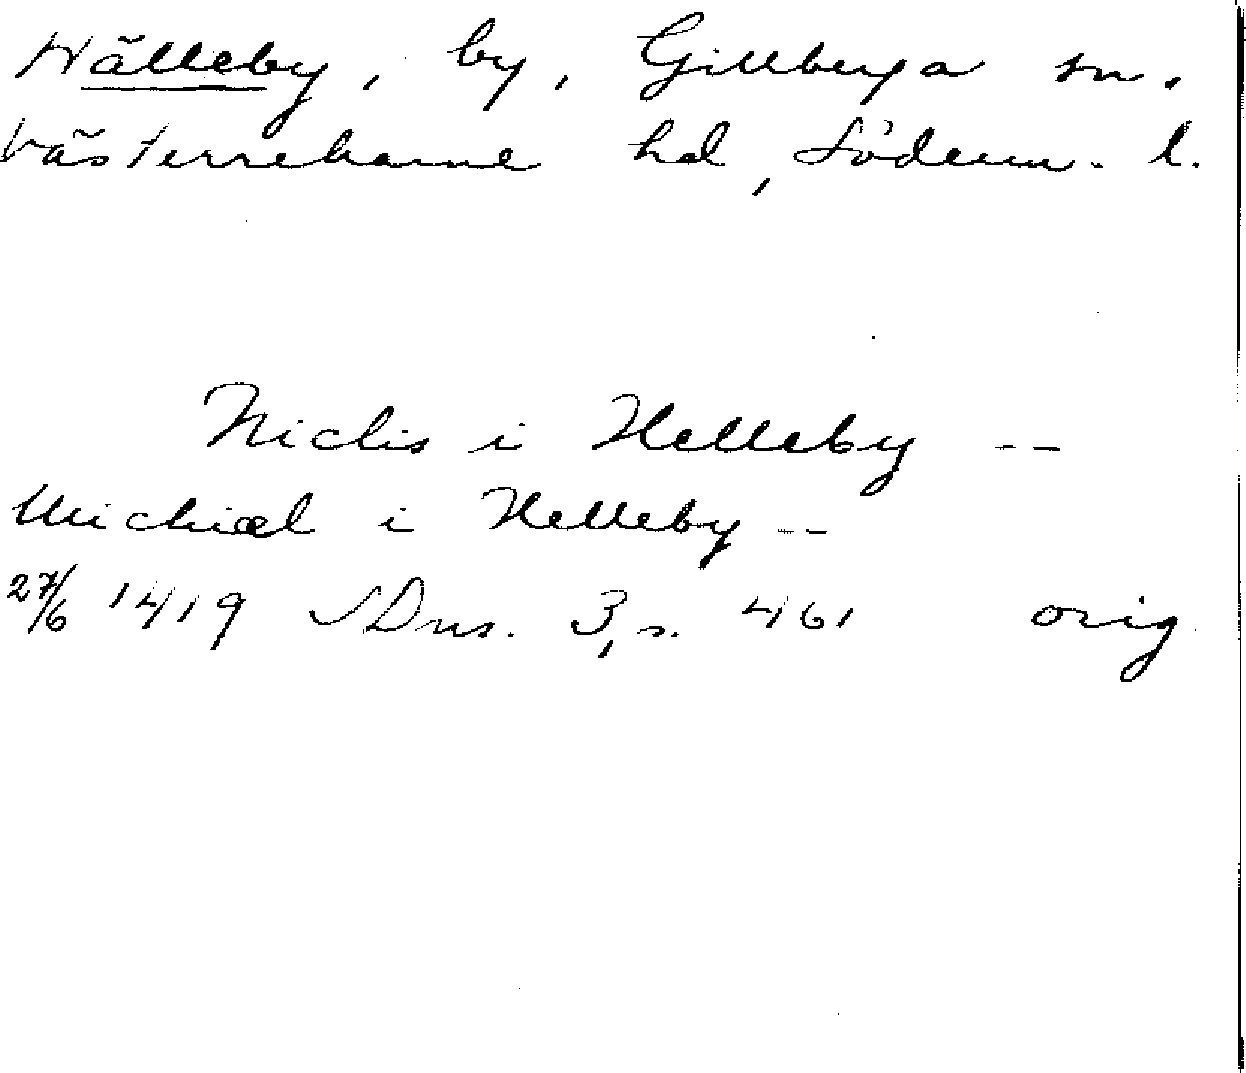 Hälleby, by, Gillberga sn.
Västerrekarne hd, Söderm. l.
Niclis i Helleby --
Michiæl i Helleby --
27/6 1419 SDns. 3, s. 461 orig